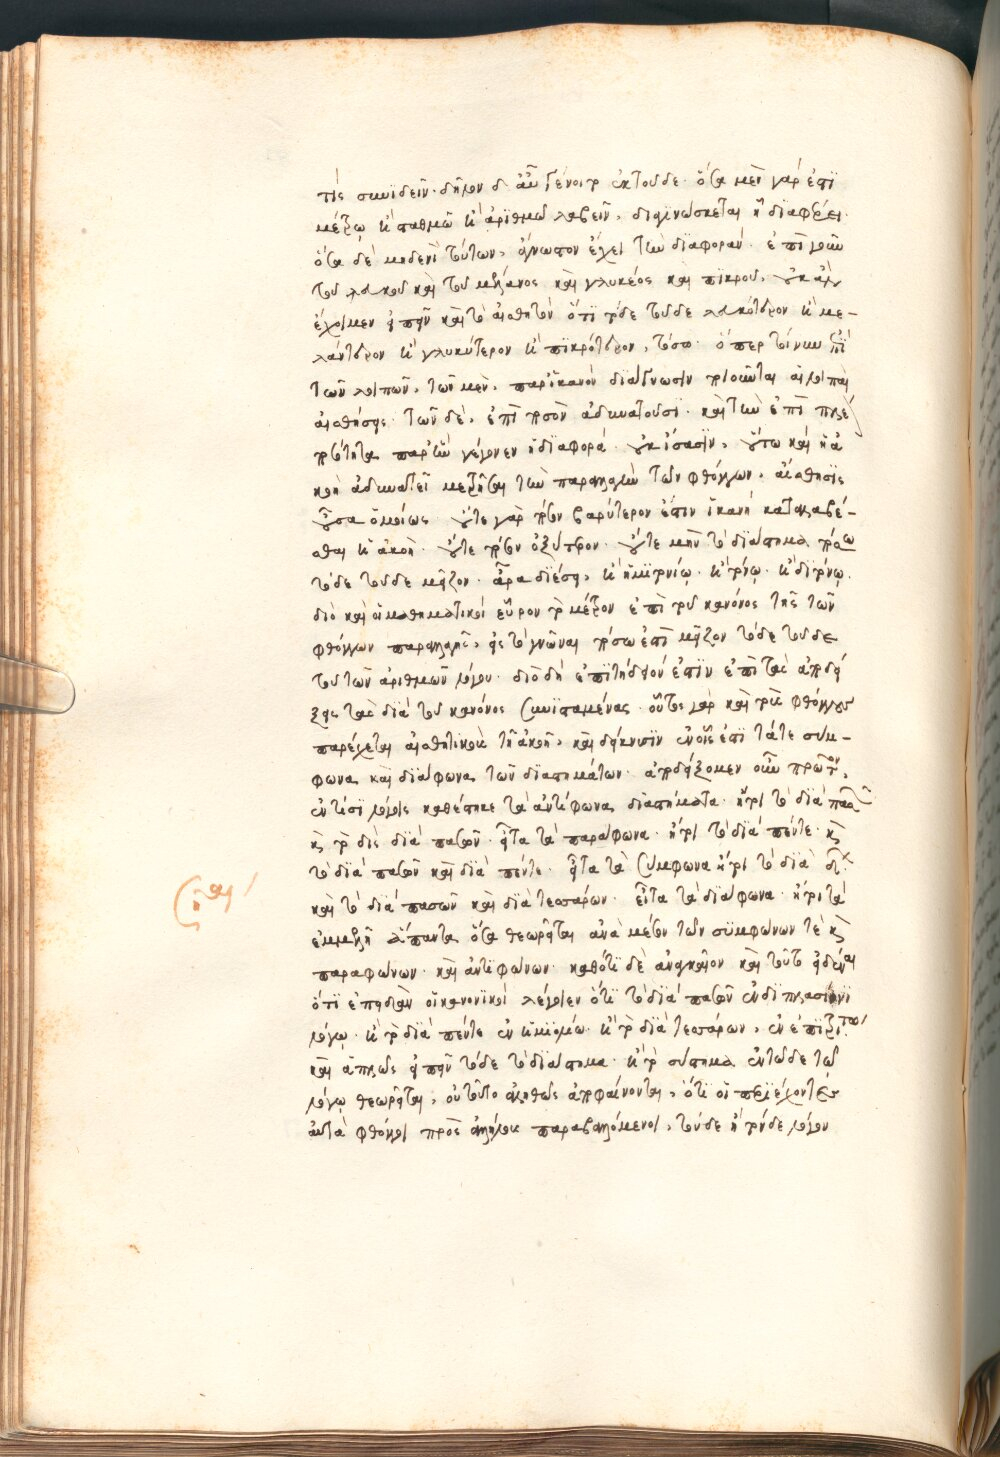 τίς συνιδεῖν· δῆλον δ' ἂν γένοιτο ἐκ τοῦδε· ὅσα μὲν γὰρ ἐπὶ
μέτρῳ κ σταθμῶ κ ἀριθμῶ λαβεῖν, διαγινώσκεται ἡ διαφέρει·
ὅσα δὲ μηδενὶ τούτων, ἄγνωστον ἔχει τὴν διαφοράν· ἐπὶ γοῦν
τοῦ λευκοῦ καὶ τοῦ μέλανος καὶ γλυκέος καὶ πικροῦ, οὐκ ἂν
ἔχοιμεν εἰπεῖν κατὰ τὸ αἰσθητὸν ὅτι τόδε τοῦδε λευκότερον κ με-
λάντερον κ γλυκύτερον κ πικρότερον, τόσω· ὅπερ τοίνυν ἐπὶ
τῶν λοιπῶν, τῶν μὲν, παρ' ἱκανὸν διάγνωσιν ποιοῦνται αἱ λοιπαὶ
αἰσθήσεις· τῶν δὲ, ἐπὶ ποσὸν ἀδυνατοῦσι· καὶ τὴν ἐπὶ πλέ
παρ' ὧν γέγονεν ἡ διαφορὰ οὐκ ἴσασιν, οὕτω καὶ ἡ ἀ
κοὴ ἀδυνατεῖ μετρῆσαι τὴν παραλλαγὴν τῶν φθόγγων, αἴσθησις
οὖσα ὁμοίως· οὔτε γὰρ πόσον βαρύτερον ἐστιν ἱκανὴ καταλαβέ-
σθαι ἡ ἀκοὴ· οὔτε πόσον ὀξύτερον· οὔτε μὴν τὸ διάστημα πόσω
τόδε τοῦδε μεῖζον· ἆρα διέσει, κ ἡμιτονίῳ· κ τόνῳ· κ διτόνῳ·
διὸ καὶ οἱ μαθηματικοὶ εὗρον τὸ μέτρον ἐπὶ τοῦ κανόνος τῆς τῶν
φθόγγων παραλλαγῆς, εἰς τὸ γνῶναι πόσω ἐστὶ μεῖζον τόδε τοῦδε
τοῦ τῶν ἀριθμῶν λόγου· διὸ δὴ ἐπιτήδειόν ἐστιν ἐπὶ τὰς ἀποδεί
ξεις τὰς διὰ τοῦ κανόνος συνισταμένας· οὗτος γὰρ καὶ τοὺς φθόγγους
παρέχεται αἰσθητικοὺς τῇ ἀκοῇ, καὶ δείκνυσιν ἐν οἷς ἐστι τά τε σύμ-
φωνα καὶ διάφωνα τῶν διαστημάτων· ἀποδείξομεν οὖν πρῶτον,
ἐν τίσι λόγοις καθέστηκε τὰ ἀντίφωνα διαστήματα· ἤτοι τὸ διὰ πασῶν
κ τὸ δὶς διὰ πασῶν· εἶτα τὰ παράφωνα· ἤτοι τὸ διὰ πέντε· κ
τὸ διὰ πασῶν καὶ διὰ πέντε· εἶτα τὰ σύμφωνα ἤτοι τὸ διὰ δ
καὶ τὸ διὰ πασῶν καὶ διὰ τεσσάρων· εἶτα τὰ διάφωνα· ἤτοι τὰ
ἐμμελῆ ἅπαντα ὅσα θεωρεῖται ἀνὰ μέσον τῶν συμφώνων τὲ κ
παραφώνων· καὶ ἀντιφώνων· καθότι δὲ ἀναγκαῖον καὶ τοῦτο εἰδέναι
ὅτι ἐπειδὰν οἱ κανονικοὶ λέγωσιν ὅτι τὸ διὰ πασῶν ἐν διπλασίονι
λόγῳ· κ τὸ διὰ πέντε ἐν ἡμιολίω· κ τὸ διὰ τεσσάρων, ἐν ἐπιτρίτω
καὶ ἁπλῶς εἰπεῖν τόδε τὸ διάστημα· κ τὸ σύστημα ἐν τῶδε τῶ
λόγῳ θεωρεῖται, οὐ τοῦτο ἀληθῶς ἀποφαίνονται, ὅτι οἱ περιέχοντες
αὐτὰ φθόγγοι πρὸς ἀλλήλους παραβαλλόμενοι, τόνδε ἢ τόνδε λόγον